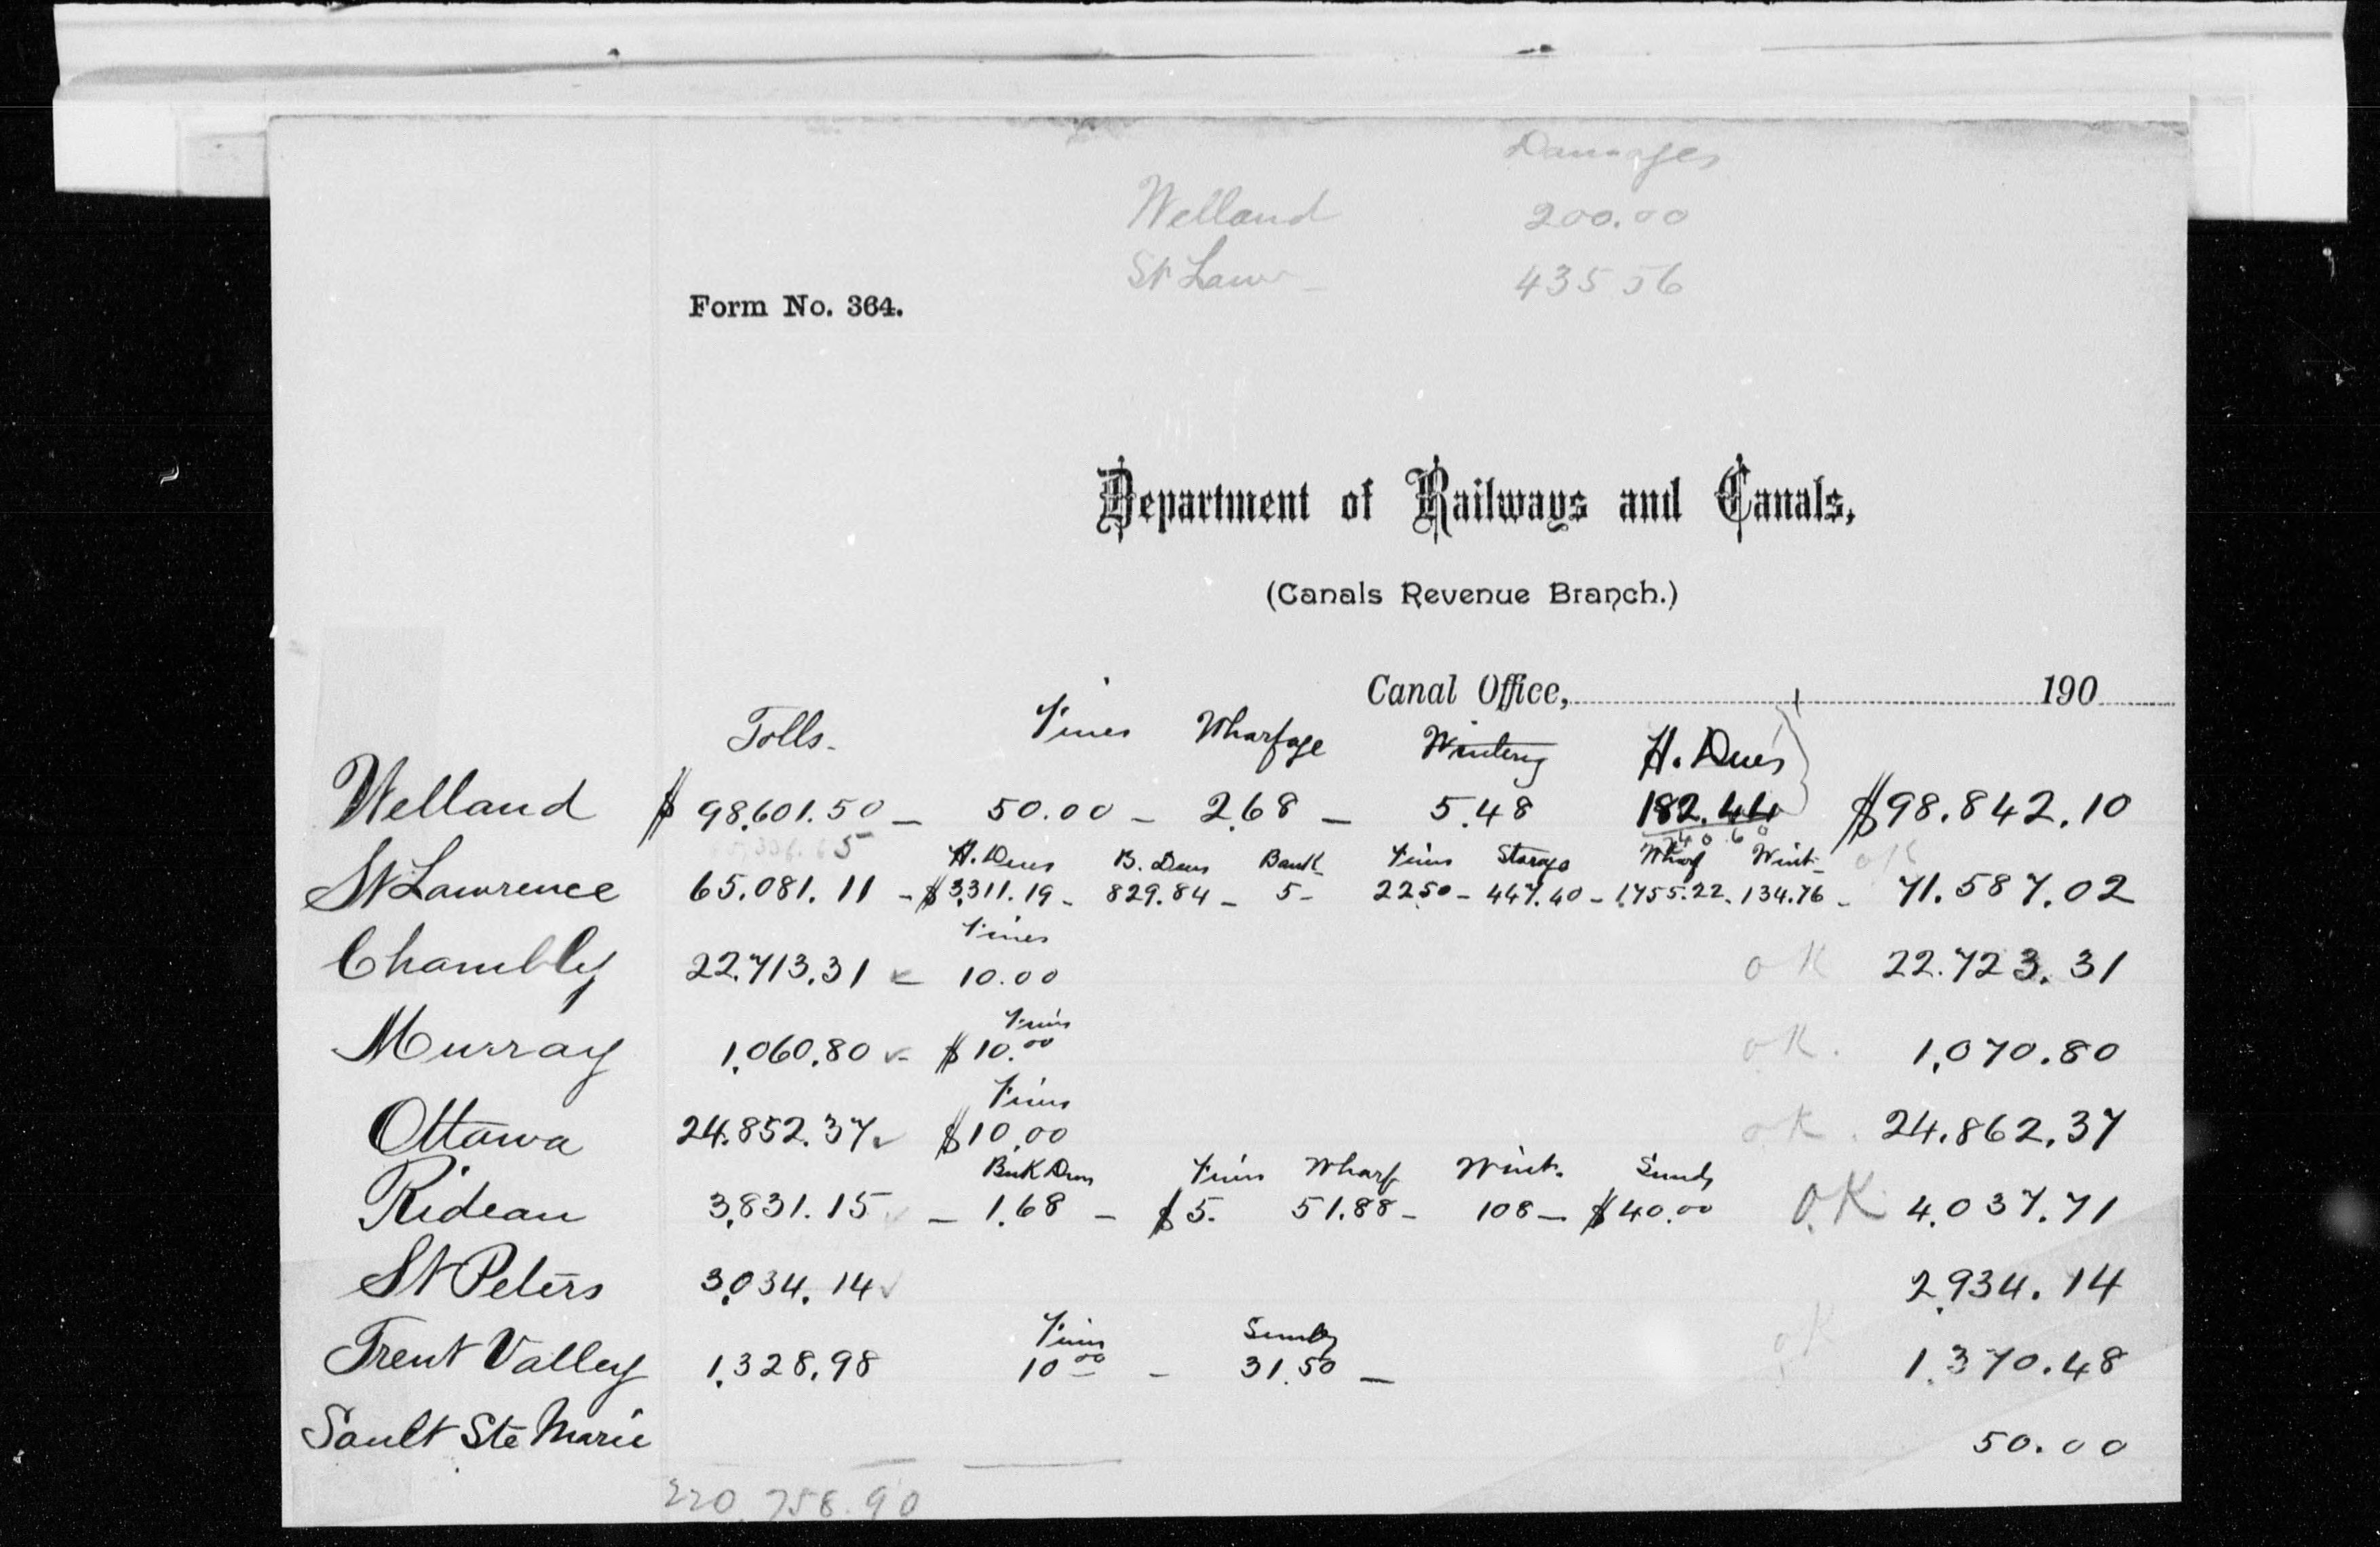 Damages
Welland 200.00
St Law - 435 56
Form No. 364.
Department of Railways and Canals,
(Canals Revenue Branch.)
Canal Office, 190
Tolls. Fines Wharfage Wintering H. Dues
Welland $98,601.50 - 50.00 - 2.68 - 5.48 182.44 $98.842.10
240.60
H. Dues B. Dues Bank Fines Storage Wharf Wint- OK
St Lawrence 65.081.11 - $3,311.19 - 829.84 - 5 - 22.50 - 447.40 - 1,755.22. 134.76 - 71.587.02
Fines
Chambly 22.713.31 - 10.00 OK 22.723.31
Fines
Murray 1,060.80 - $10.00 OK. 1,070.80
Fines
Ottawa 24.852.37 $10.00 OK. 24.862.37
Bk Dues Fines Wharf Wint. Sundy
Rideau 3,831.15 - 1.68 - $5. 51.88 - 108 - $40.00 O.K 4.037.71
St Peters 3,034.14 2,934.14
Fines Sundy
Trent Valley 1,328.98 10.00 - 31.50 - OK 1,370.48
Sault Ste Marie 50.00
220,758.90